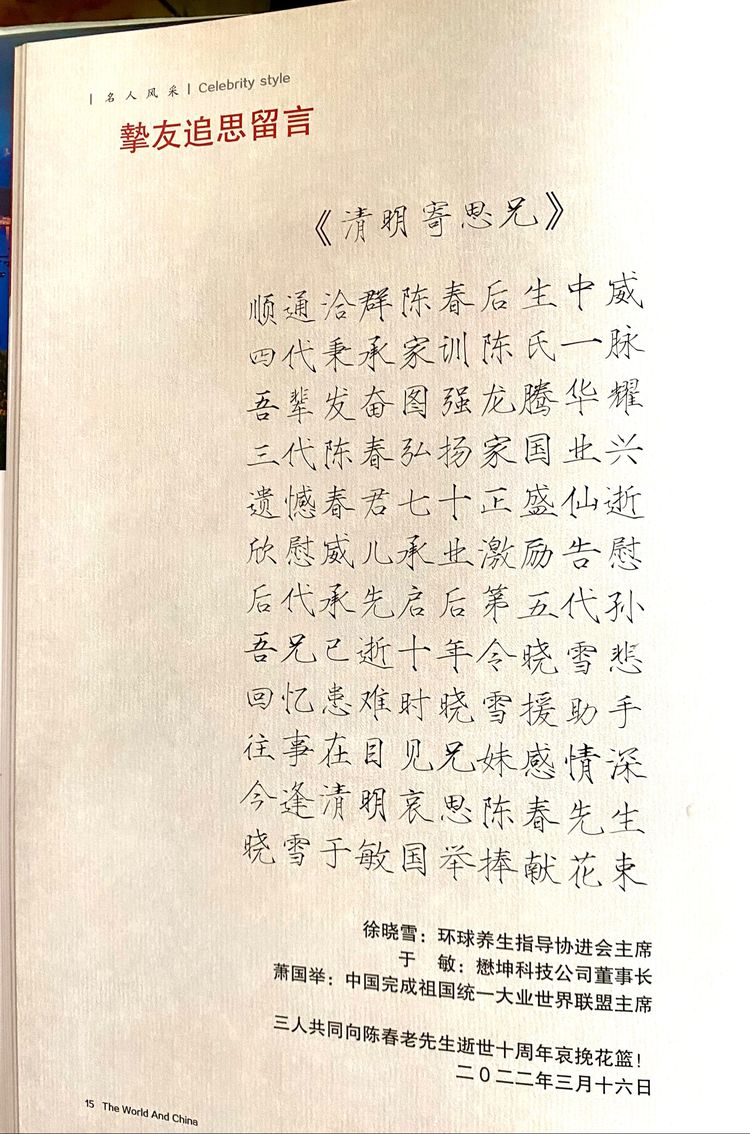 | 名人风采 | Celebrity style
摯友追思留言
《清明寄思兄》
顺通洽群陈春后生中威
四代秉承家训陈氏一脉
吾辈发奋图强龙腾华耀
三代陈春弘扬家国业兴
遗憾春君七十正盛仙逝
欣慰威儿承业激励告慰
后代承先启后第五代孙
吾兄已逝十年令晓雪悲
回忆患难时晓雪援助手
往事在目见兄妹感情深
今逢清明哀思陈春先生
晓雪于敏国举捧献花束
徐晓雪：环球养生指导协进会主席
于 敏：懋坤科技公司董事长
萧国举：中国完成祖国统一大业世界联盟主席
三人共同向陈春老先生逝世十周年哀挽花篮！
二〇二二年三月十六日
15 The World And China